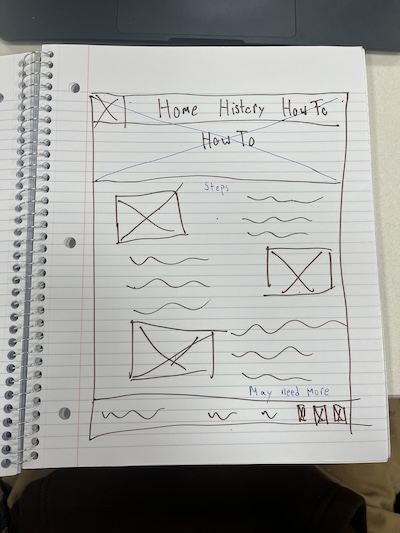 Home Histery How To
How To
Steps
May need More